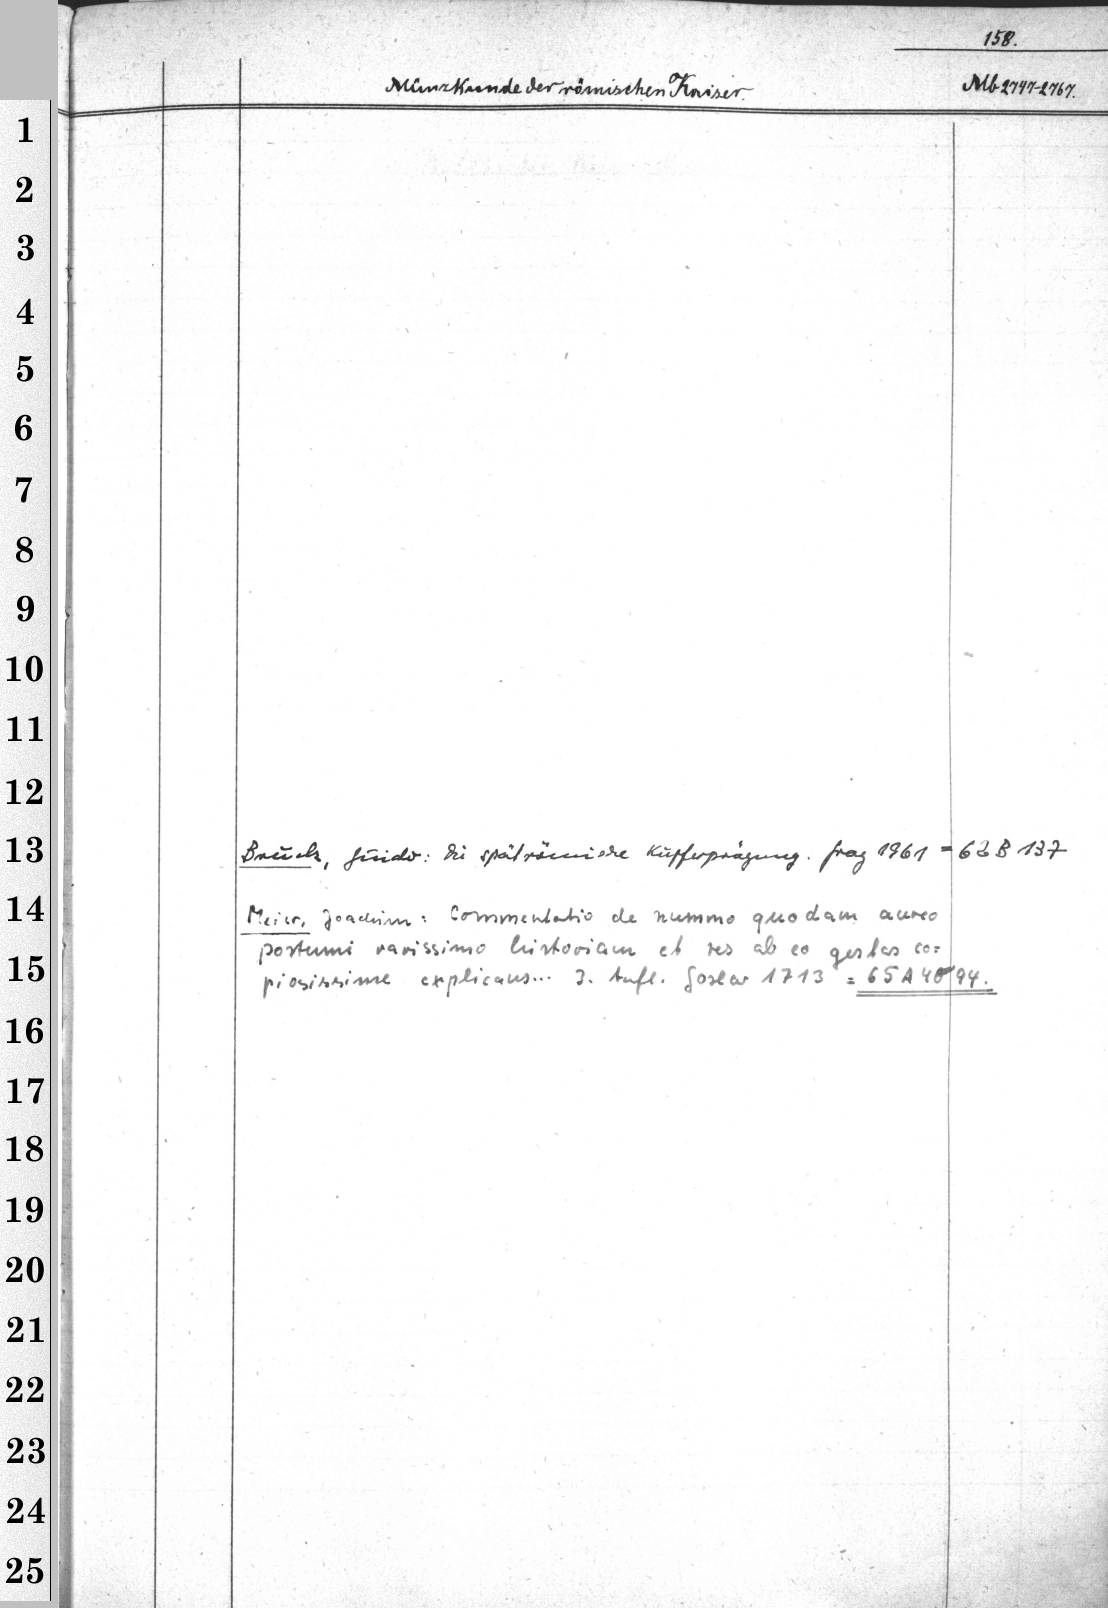 158.
Münzkunde der römischen Kaiser.
Mb 2747-2767.
1
2
3
4
5
6
7
8
9
10
11
12
13
Bruck, Guido: Die spätrömische Kupferprägung. Graz 1961 = 62 B 137
14
Meier, Joachim: Commentatio de nummo quodam aureo
postumi rarissimo historiam et res ab eo gestas co=
15
piosissime explicans... 3. Aufl. Goslar 1713 = 65 A 4094.
16
17
18
19
20
21
22
23
24
25